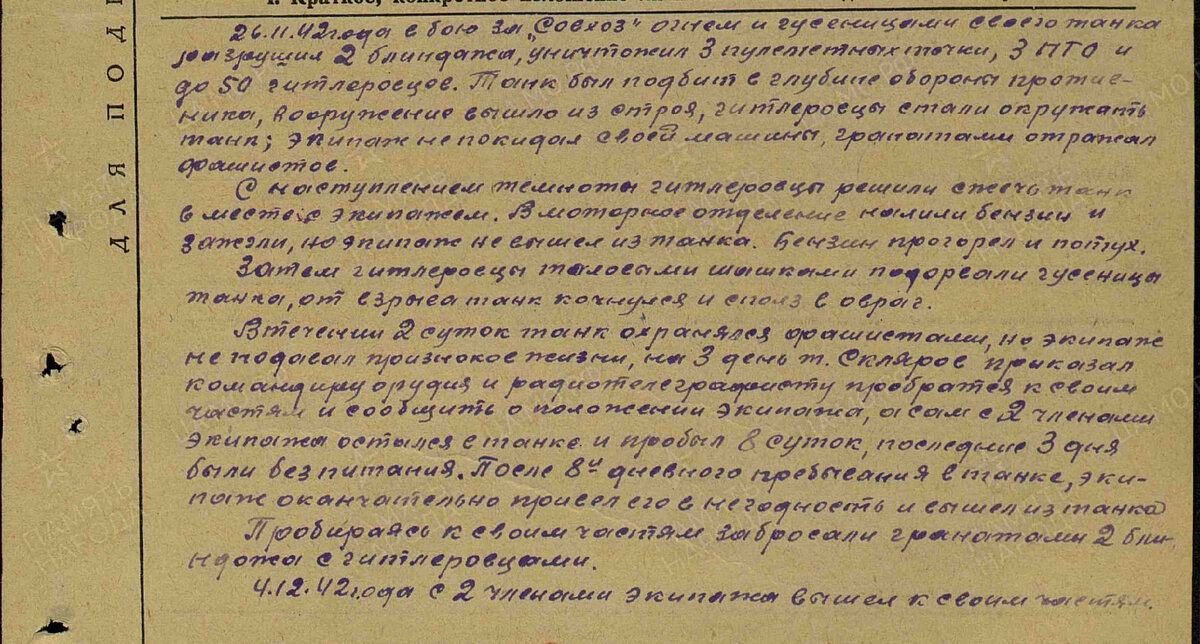 1. Краткое, конкретное изложение
26.11.42 года в бою за „Совхоз" огнем и гусеницами своего танка
разрушил 2 блиндажа, уничтожил 3 пулеметных точки, 3 ПТО и
до 50 гитлеровцев. Танк был подбит в глубине обороны против-
ника, вооружение вышло из строя, гитлеровцы стали окружать
танк; экипаж не покидал своей машины, гранатами отражал
фашистов.
С наступлением темноты гитлеровцы решили сжечь танк
вместе с экипажем. В моторное отделение налили бензин и
зажгли, но экипаж не вышел из танка. Бензин прогорел и потух.
Затем гитлеровцы толовыми шашками подорвали гусеницы
танка, от взрыва танк качнулся и сполз в овраг.
В течении 2 суток танк охранялся фашистами, но экипаж
не подавал признаков жизни, на 3 день т. Скляров приказал
командиру орудия и радиотелеграфисту пробратся к своим
частям и сообщить о положении экипажа, а сам с 2 членами
экипажа остался в танке и пробыл 8 суток, последние 3 дня
были без питания. После 8и дневного пребывания в танке, эки-
паж окончательно привел его в негодность и вышел из танка
Пробираясь к своим частям забросали гранатами 2 бли-
ндажа с гитлеровцами.
4.12.42 года с 2 членами экипажа вышел к своим частям.
ДЛЯ ПОД